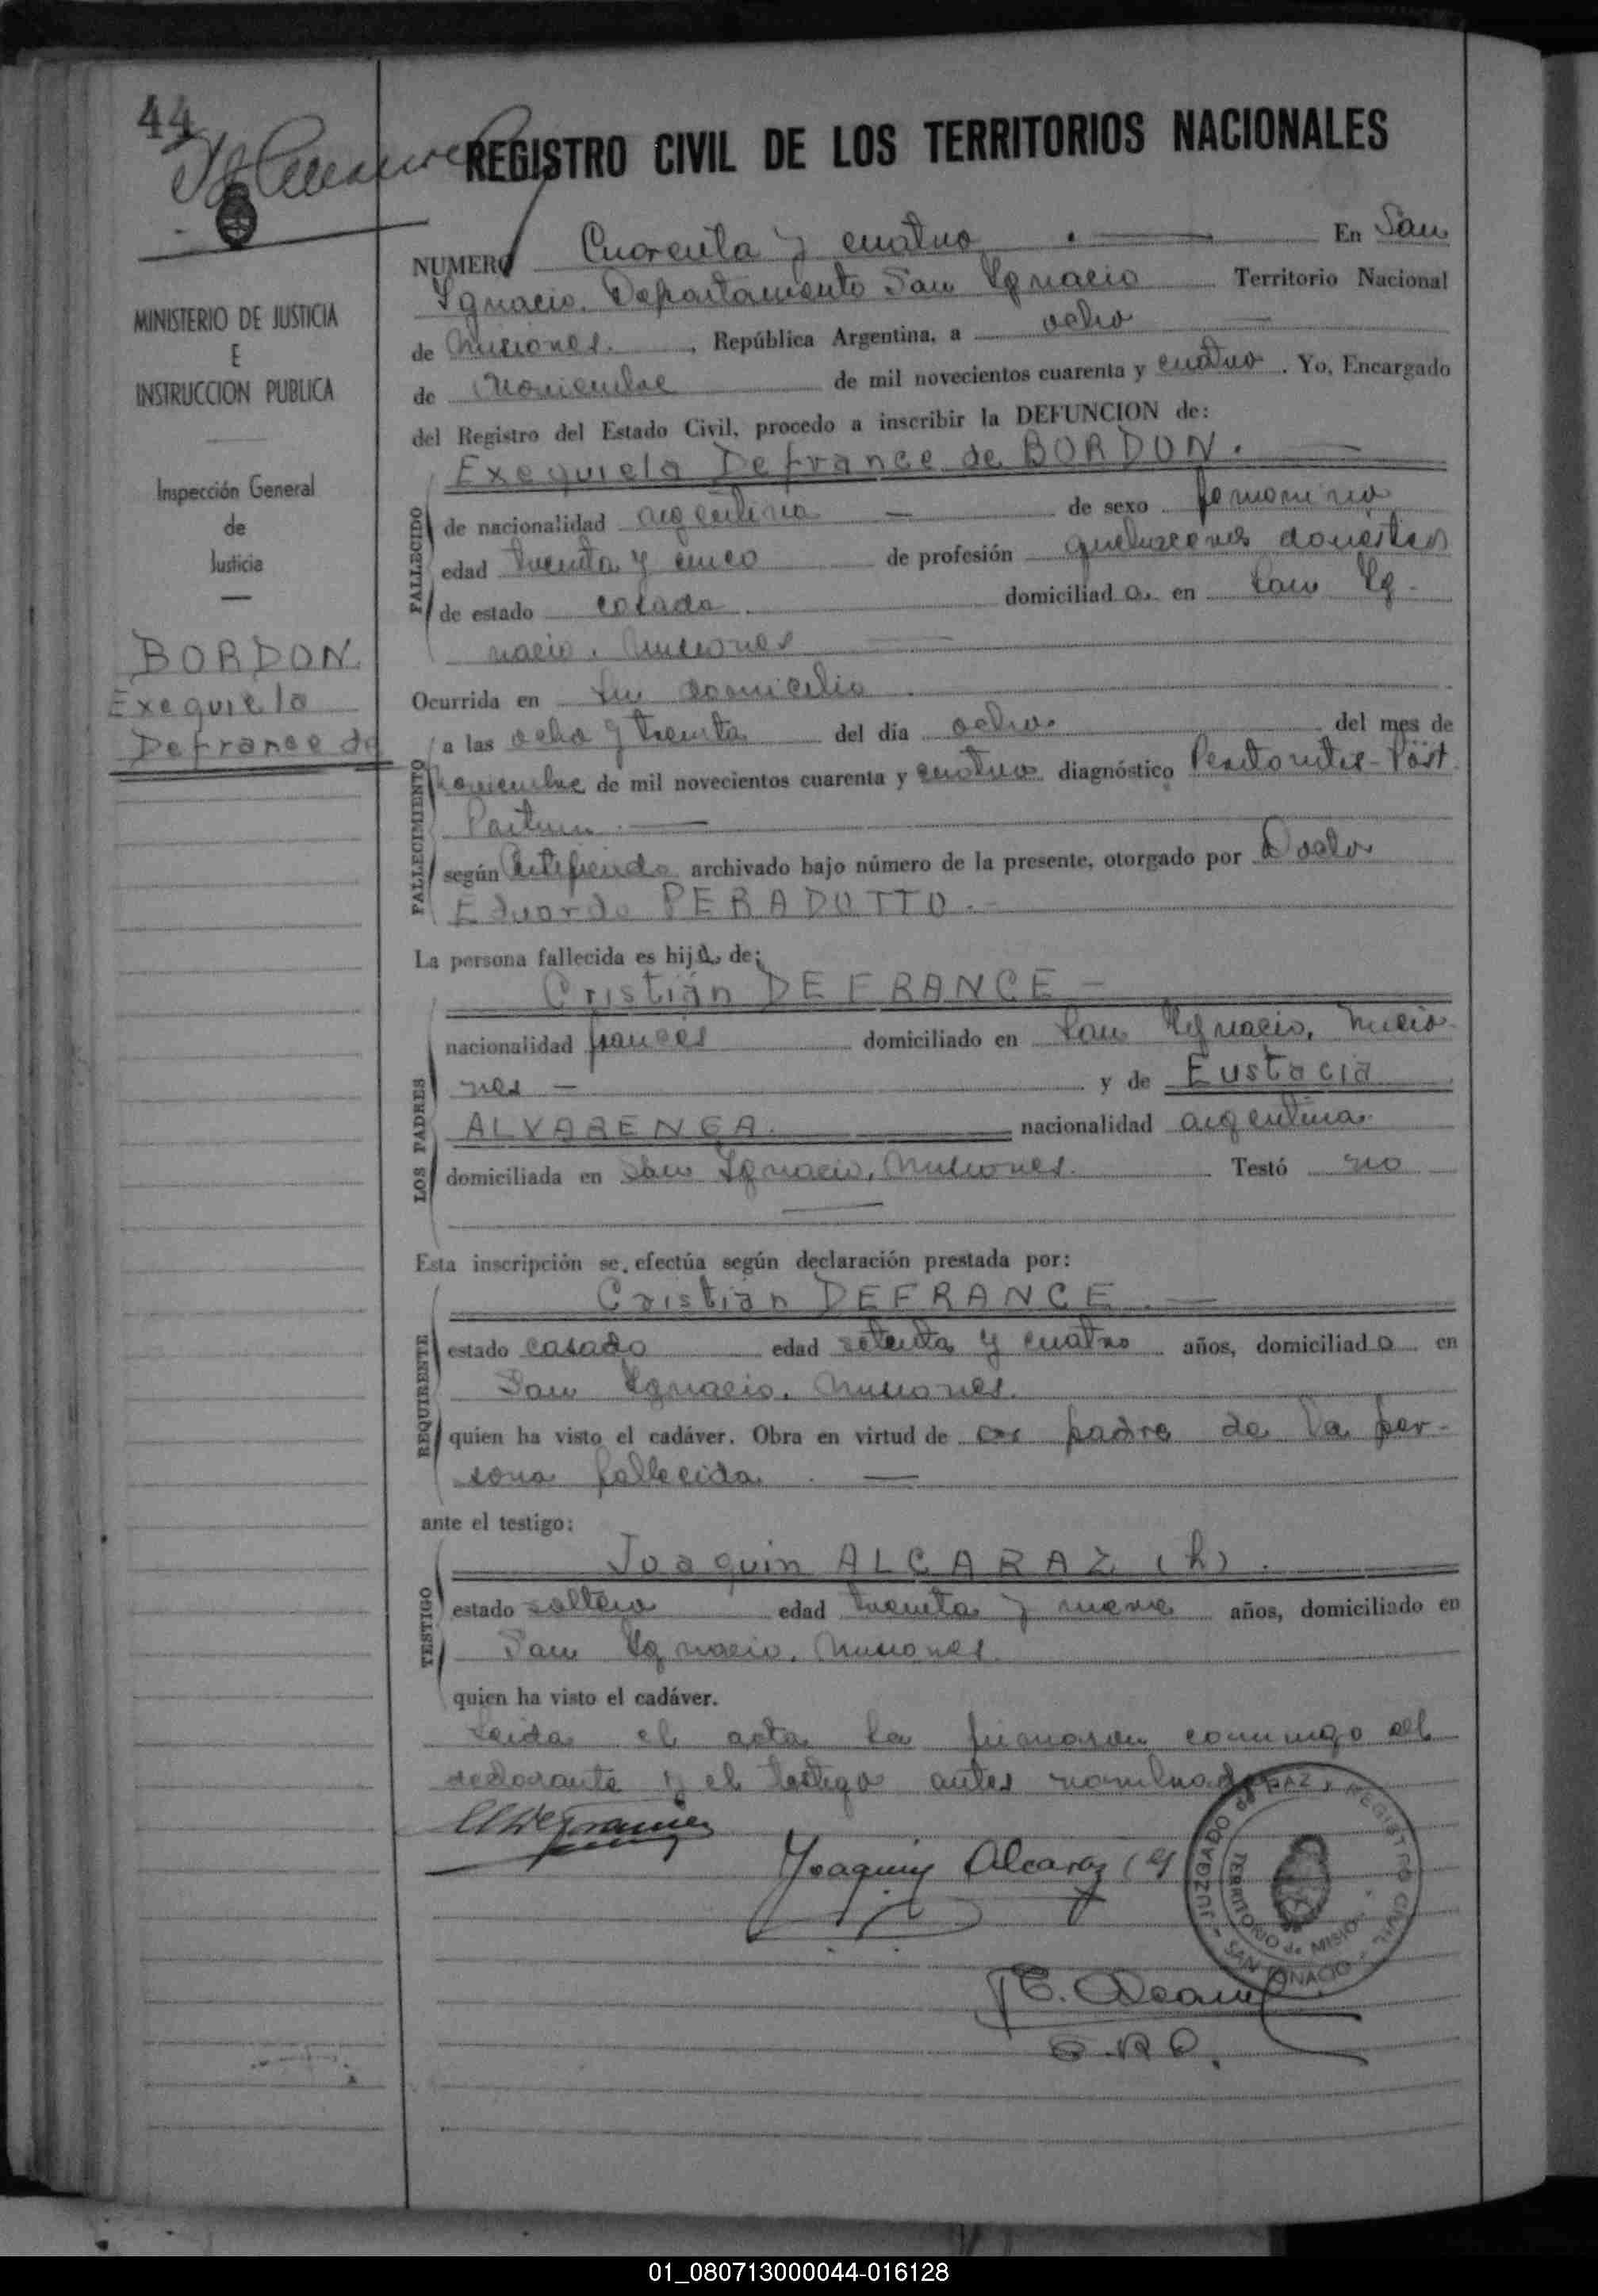 44
REGISTRO CIVIL DE LOS TERRITORIOS NACIONALES
MINISTERIO DE JUSTICIA
E
INSTRUCCION PUBLICA
Inspección General
de
Justicia
BORDON
Exequiela
Defrance de
NUMERO Cuarenta y cuatro. En San
Ignacio. Departamento San Ignacio Territorio Nacional
de Misiones. , República Argentina, a ocho
de Noviembre de mil novecientos cuarenta y cuatro . Yo, Encargado
del Registro del Estado Civil, procedo a inscribir la DEFUNCION de:
FALLECIDO
Exequiela Defrance de BORDON. —
de nacionalidad argentina — de sexo femenino
edad treinta y cinco de profesión quehaceres domésticos
de estado casada domiciliada. en San Ig-
nacio. Misiones
Ocurrida en su domicilio.
FALLECIMIENTO
a las ocho y treinta del día ocho. del mes de
noviembre de mil novecientos cuarenta y cuatro diagnóstico Peritonitis-Post.
Partum. —
según Certificado archivado bajo número de la presente, otorgado por Doctor
Eduardo PERADOTTO. -
La persona fallecida es hija de:
LOS PADRES
Cristián DEFRANCE -
nacionalidad francés domiciliado en San Ignacio, Misio-
nes — y de Eustacia
ALVARENGA. nacionalidad argentina.
domiciliada en San Ignacio, Misiones. Testó no
Esta inscripción se efectúa según declaración prestada por:
REQUIRENTE
Cristián DEFRANCE. —
estado casado edad setenta y cuatro años, domiciliado en
San Ignacio. Misiones.
quien ha visto el cadáver. Obra en virtud de ser padre de la per-
sona fallecida. —
ante el testigo:
TESTIGO
Joaquin ALCARAZ (h).
estado soltero edad treinta y nueve años, domiciliado en
San Ignacio. Misiones.
quien ha visto el cadáver.
Leida el acta la firmaron conmigo el
declarante y el testigo antes nombrado.
Joaquin Alcaraz (h)
JUZGADO de PAZ y REGISTRO CIVIL
SAN IGNACIO
TERRITORIO de MISIONES
01_080713000044-016128